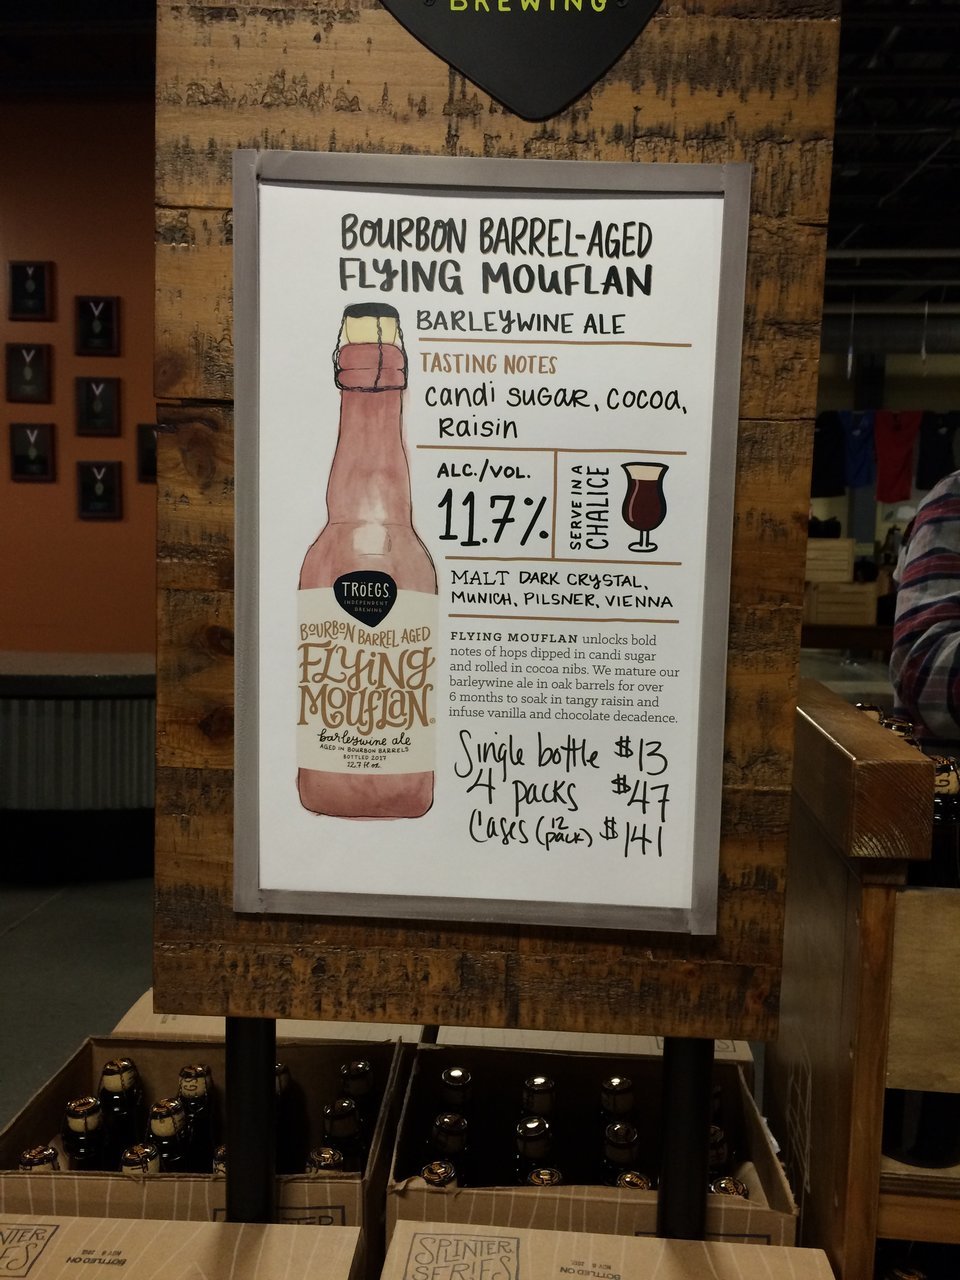 BREWING
BOURBON BARREL-AGED
FLYING MOUFLAN
BARLEYWINE ALE
TASTING NOTES
candi sugar, cocoa,
Raisin
ALC./VOL.
11.7%
SERVE IN A
CHALICE
MALT DARK CRYSTAL,
MUNICH, PILSNER, VIENNA
FLYING MOUFLAN unlocks bold
notes of hops dipped in candi sugar
and rolled in cocoa nibs. We mature our
barleywine ale in oak barrels for over
6 months to soak in tangy raisin and
infuse vanilla and chocolate decadence.
Single bottle $13
4 packs $47
Cases (12 pack) $141
TRöEGS
INDEPENDENT
BREWING
BOURBON BARREL AGED
FLYiNG
MOUFLAN
barleywine ale
AGED IN BOURBON BARRELS
BOTTLED 2017
12.7 fl oz.
SPLINTER
SERIES
BOTTLED ON